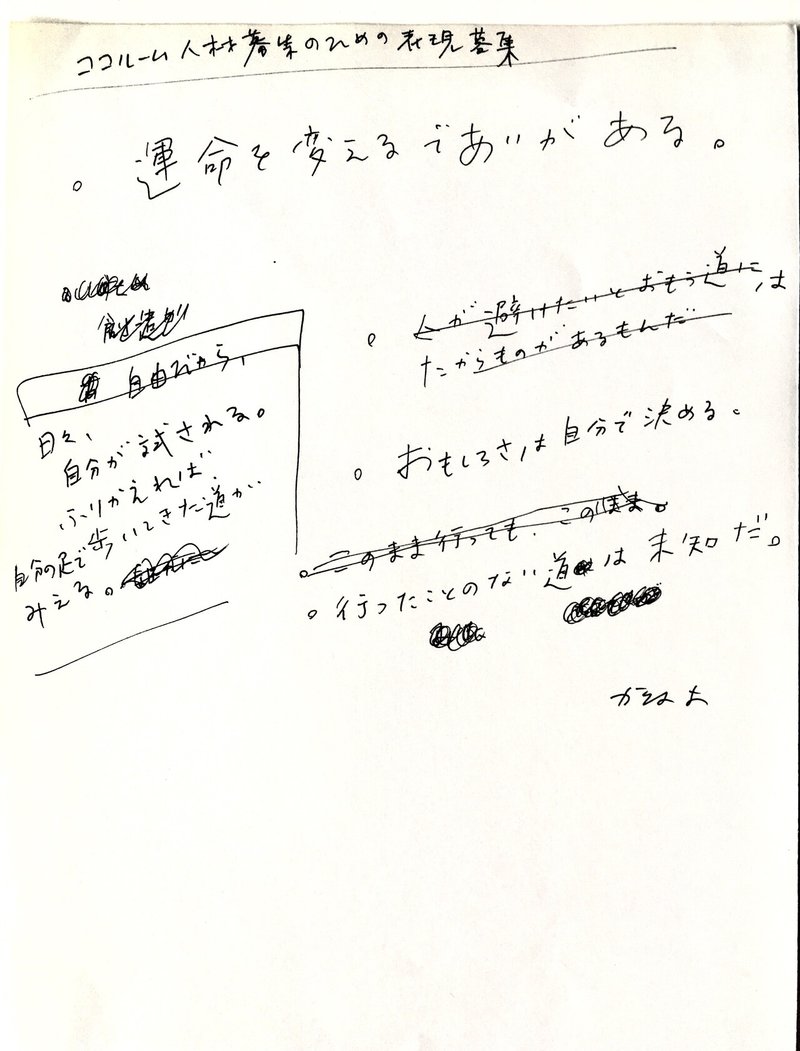 ココルーム人材募集のための表現募集
。運命を変えるであいがある。
自由だから、
日々、
自分が試される。
ふりかえれば
自分の足で歩いてきた道が
みえる。
。人が避けたいとおもう道には
たからものがあるもんだ
。おもしろさは自分で決める。
。このまま行っても、このまま。
。行ったことのない道は未知だ。
かなよ